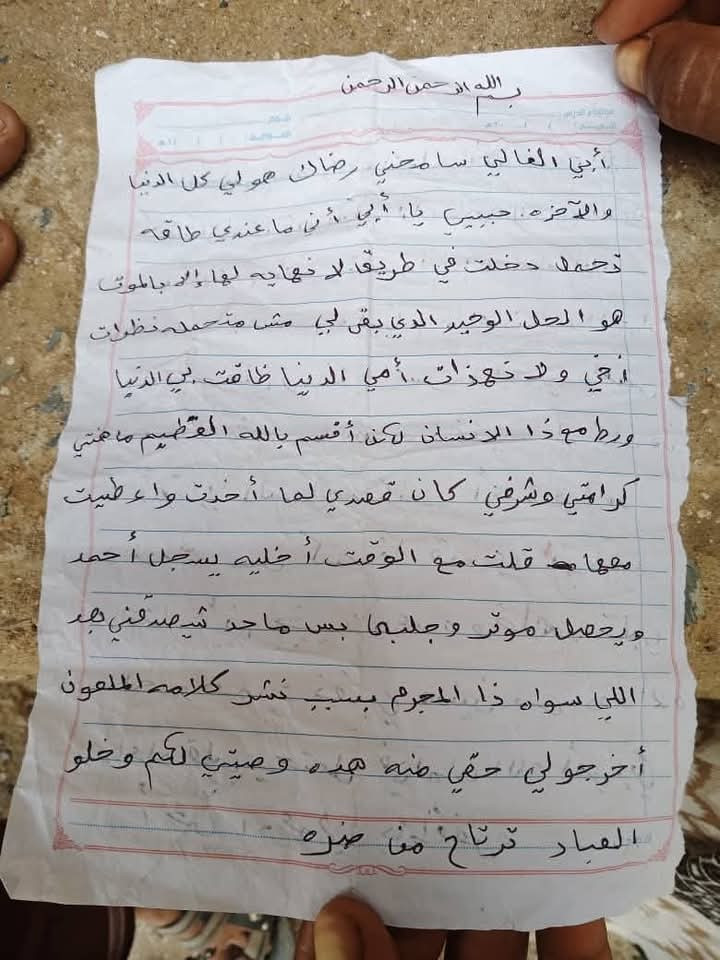 بسم الله الرحمن الرحمن
أبي الغالي سامحني رضاك هو لي كل الدنيا
والآخره حبيبي يا أبي أني ما عندي طاقه
تحمل دخلت في طريق لا نهايه لها إلا بالموت
هو الحل الوحيد الدي بقى لي مش متحمله نظرات
أخي ولا تهذات أمي الدنيا ظاقت بي الدنيا
مع ذا الانسان لكن أقسم بالله العظيم ما هنتي
كرامتي وشرفي كان قصدي لما أخدت واعطيت
معها قلت مع الوقت أخليه يسجل أحمد
ويحصل موتر وجلبها بس ماحد شيصدقني بعد
اللي سواه ذا المجرم بسبب نشر كلامه الملعون
أخرجولي حقي منه هده وصيتي لكم وخلو
العباد ترتاح من ضره